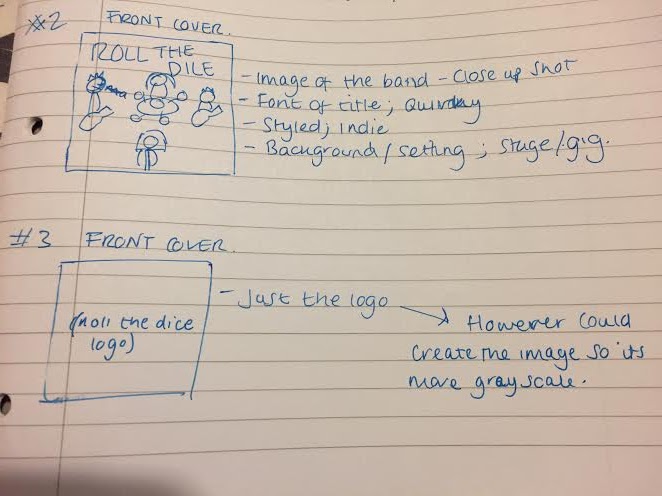 #2 FRONT COVER.
ROLL THE
DICE
- Image of the band - Close up shot
- Font of title; Quirky
- Styled; indie
- Background / setting ; stage/gig.
#3 FRONT COVER.
(Roll the dice
logo)
- Just the logo
However could
create the image so its
more grayscale.